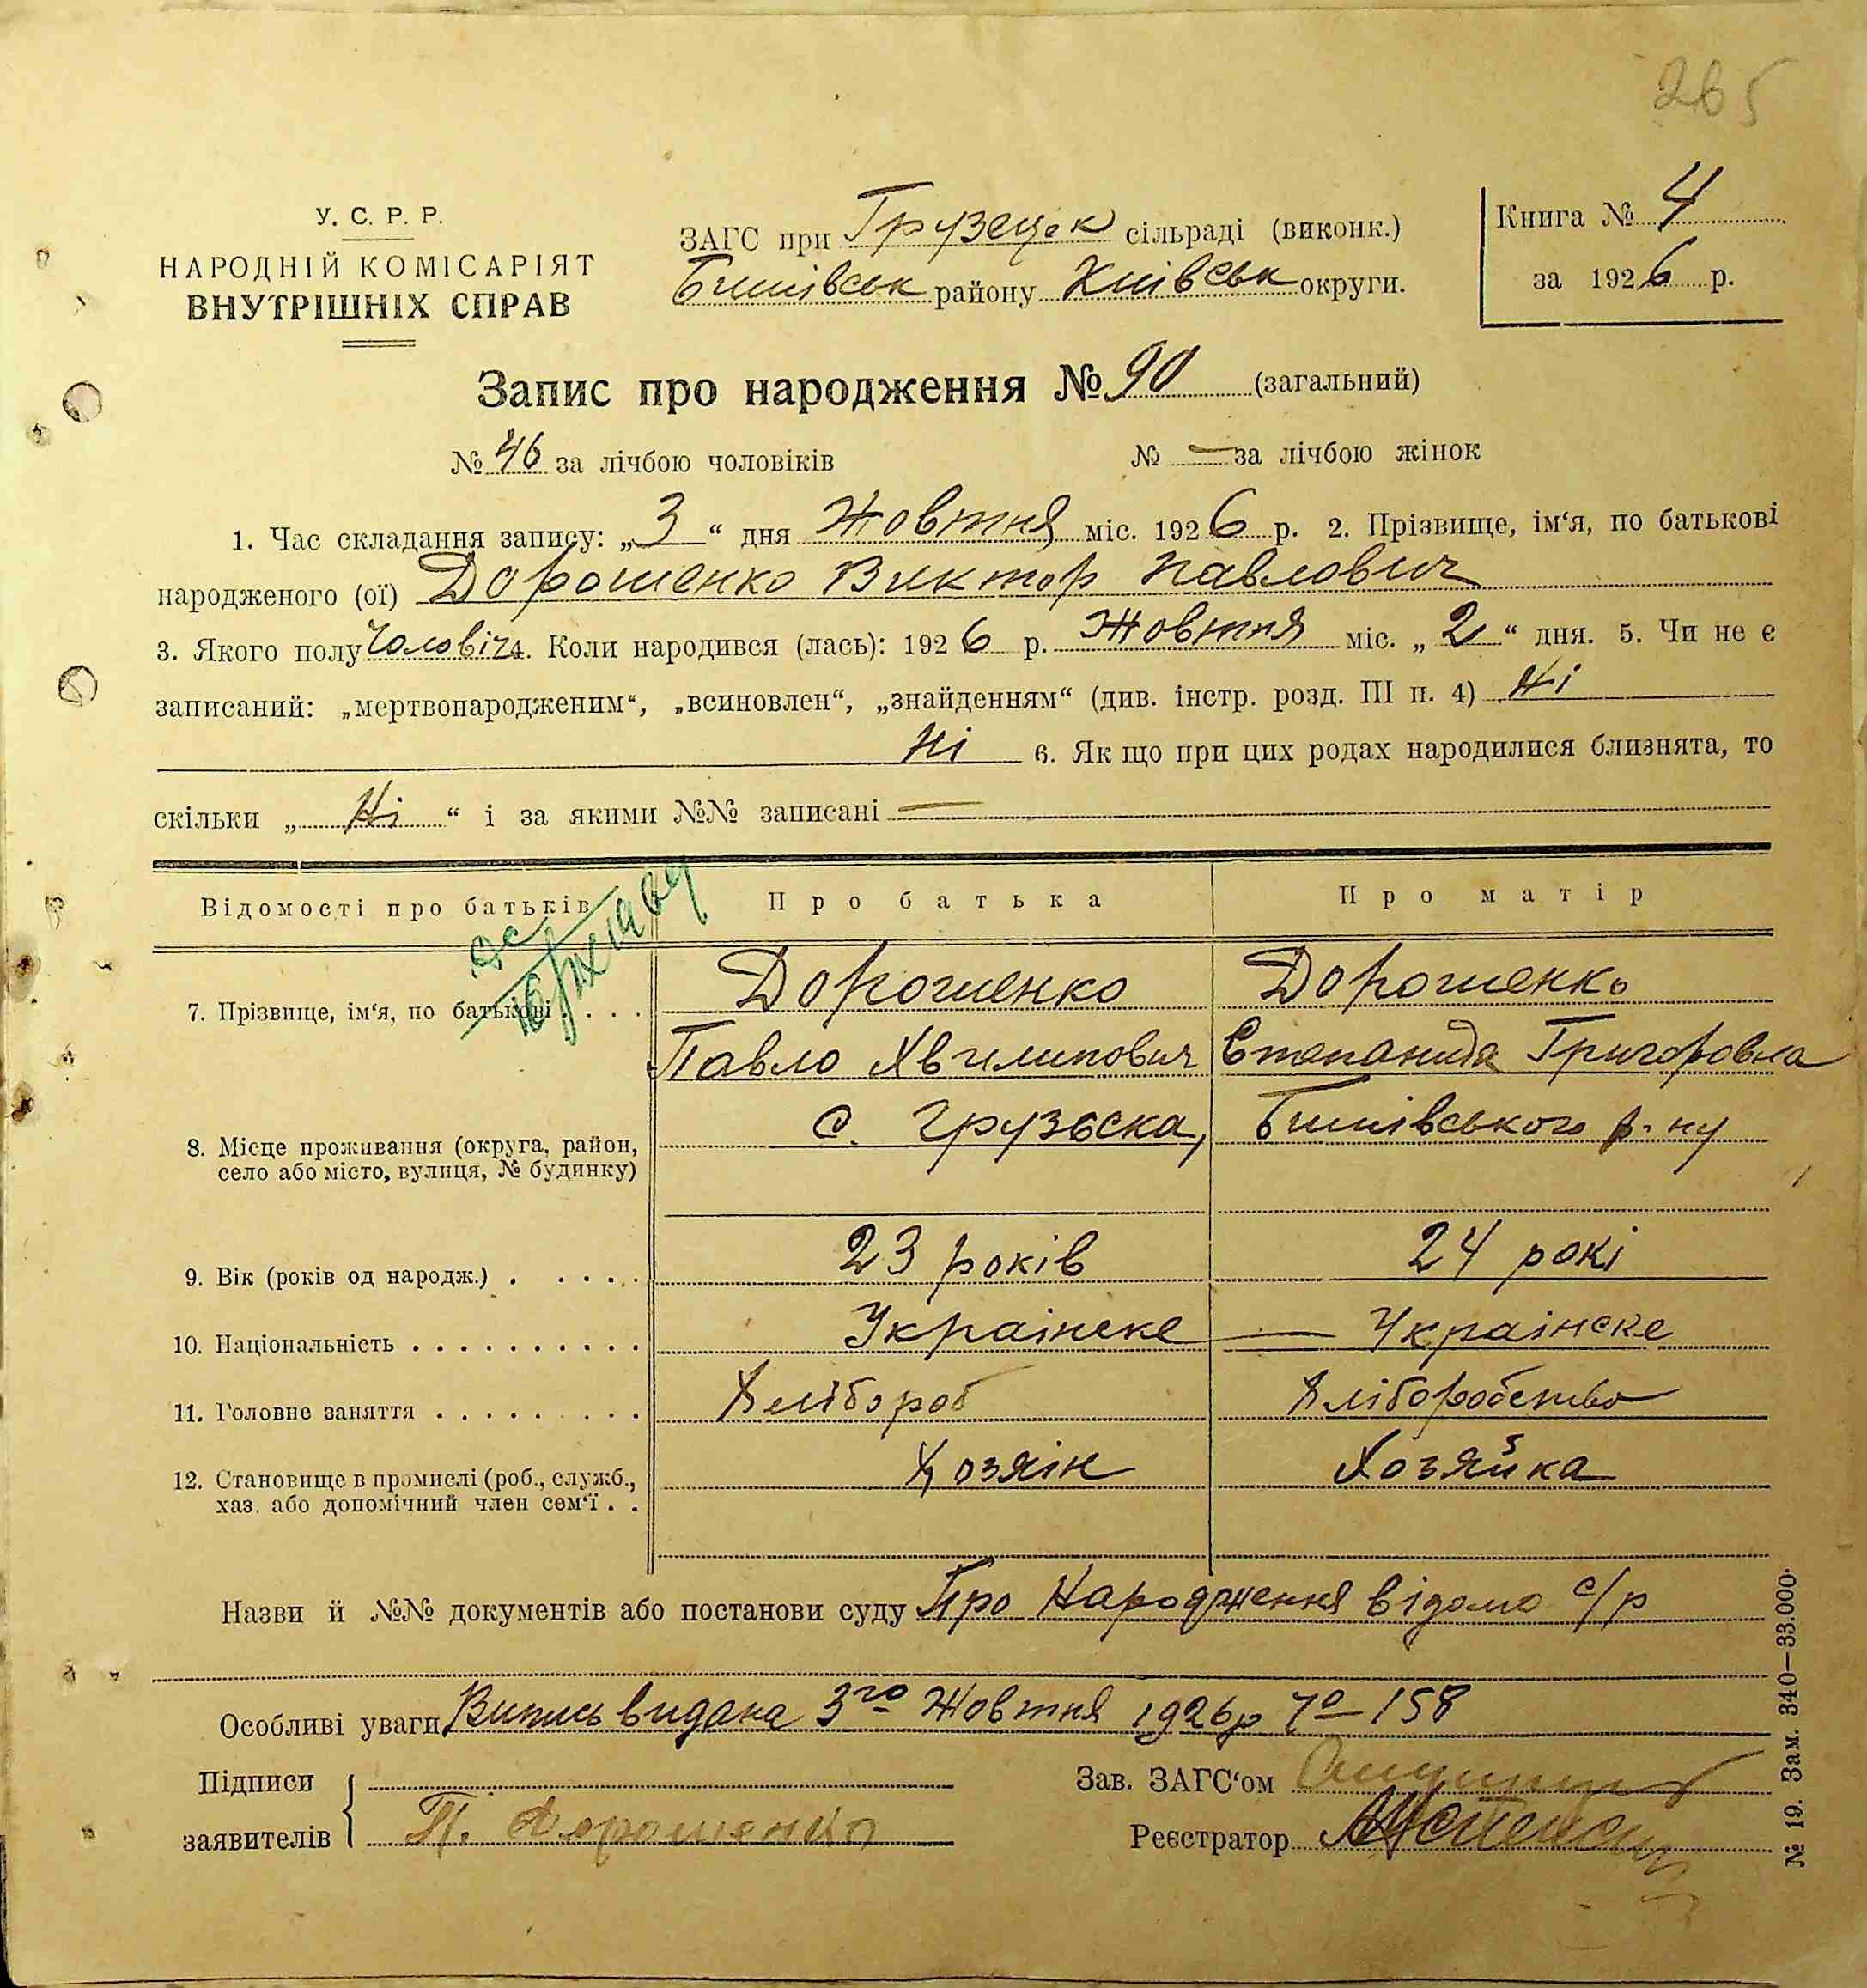 265
У. С. Р. Р.
НАРОДНІЙ КОМІСАРІЯТ
ВНУТРІШНІХ СПРАВ
ЗАГС при Грузецьк сільраді (виконк.)
Бишівськ району Київськ округи.
Книга № 4
за 1926 р.
Запис про народження № 90 (загальний)
№ 46 за лічбою чоловіків № — за лічбою жінок
1. Час складання запису: „3“ дня Жовтня міс. 1926 р. 2. Прізвище, ім‘я, по батькові
народженого (ої) Дорошенко Виктор Павлович
3. Якого полу Чоловіч 4. Коли народився (лась): 1926 р. Жовтня міс. „2“ дня. 5. Чи не є
записаний: „мертвонародженим“, „всиновлен“, „знайденням“ (див. інстр. розд. III п. 4) Ні
Ні 6. Як що при цих родах народилися близнята, то
скільки „Ні“ і за якими №№ записані —
Відомості про батьків Про батька Про матір
7. Прізвище, ім‘я, по батькові . . . . Дорошенко Дорошенко
Павло Хвилипович Степанида Григоровна
8. Місце проживання (округа, район, с. Грузьска, Бишівського р-ну
село або місто, вулиця, № будинку)
9. Вік (років од народж.) . . . . . . 23 років 24 рокі
10. Національність . . . . . . . . . . Украінске — Украінске
11. Головне заняття . . . . . . . . . Хлібороб Хліборобство
12. Становище в промислі (роб., служб., Хозяін Хозяйка
хаз. або допомічний член сем‘ї . .
Назви й №№ документів або постанови суду Про Народження відомо с/р
Особливі уваги Випись видана 3го Жовтня 1926р № 158
Підписи
заявителів П. Дорошенко
Зав. ЗАГС‘ом
Реєстратор
№ 19. Зам. 340—33.000.